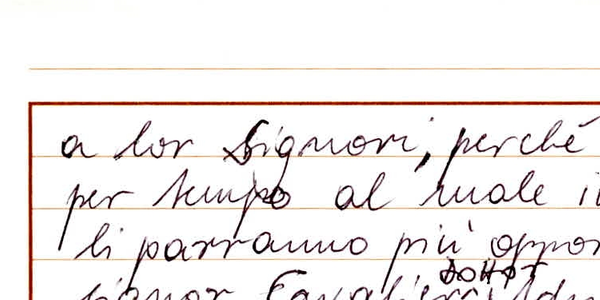 a lor Signori, perché
per tempo al male
li parranno più oppor
signor Cavalier